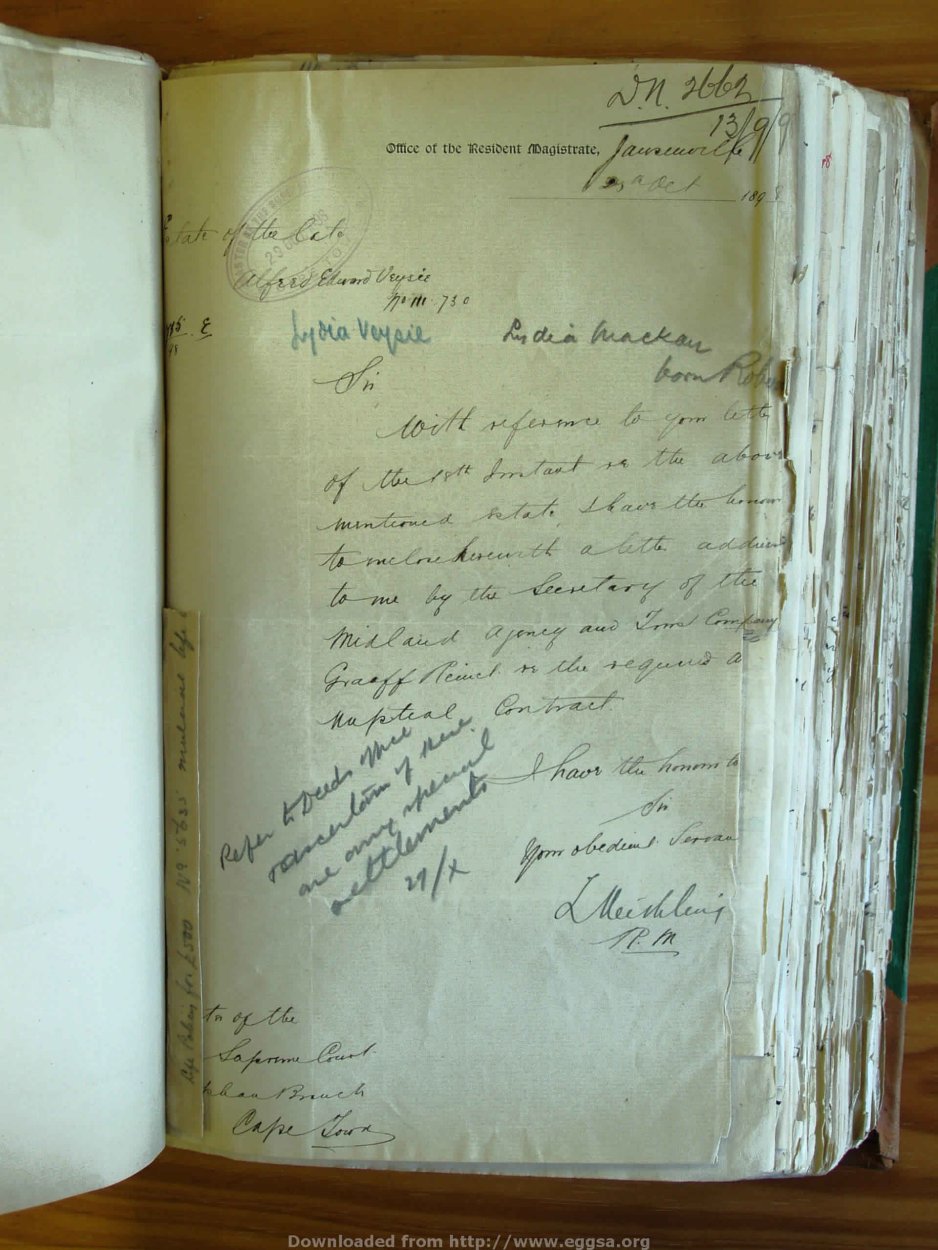 D.N. 2662
13/9/9
Office of the Resident Magistrate, Jansenville
Oct 189
Estate of the Late
Alfred Edward Veysie
No 111. 730
Lydia Veysie
Lydia Mackay
born Rob
Sir
With reference to your lette
of the 18th Instant re the above
mentioned Estate, I have the honour
to enclose herewith a letter address
to me by the Secretary of the
Midland Agency and Trust Company
Graaff Reinet re the required a
nuptial Contract
I have the honour to
Sir
Your obedient Servan
R. M
Refer to Deeds Office
to ascertain if there
are any special
settlements
29/X
ter of the
Supreme Court
phan Branch
Cape Town
Life Policy for £500 No 5635 mutual life
Downloaded from http://www.eggsa.org